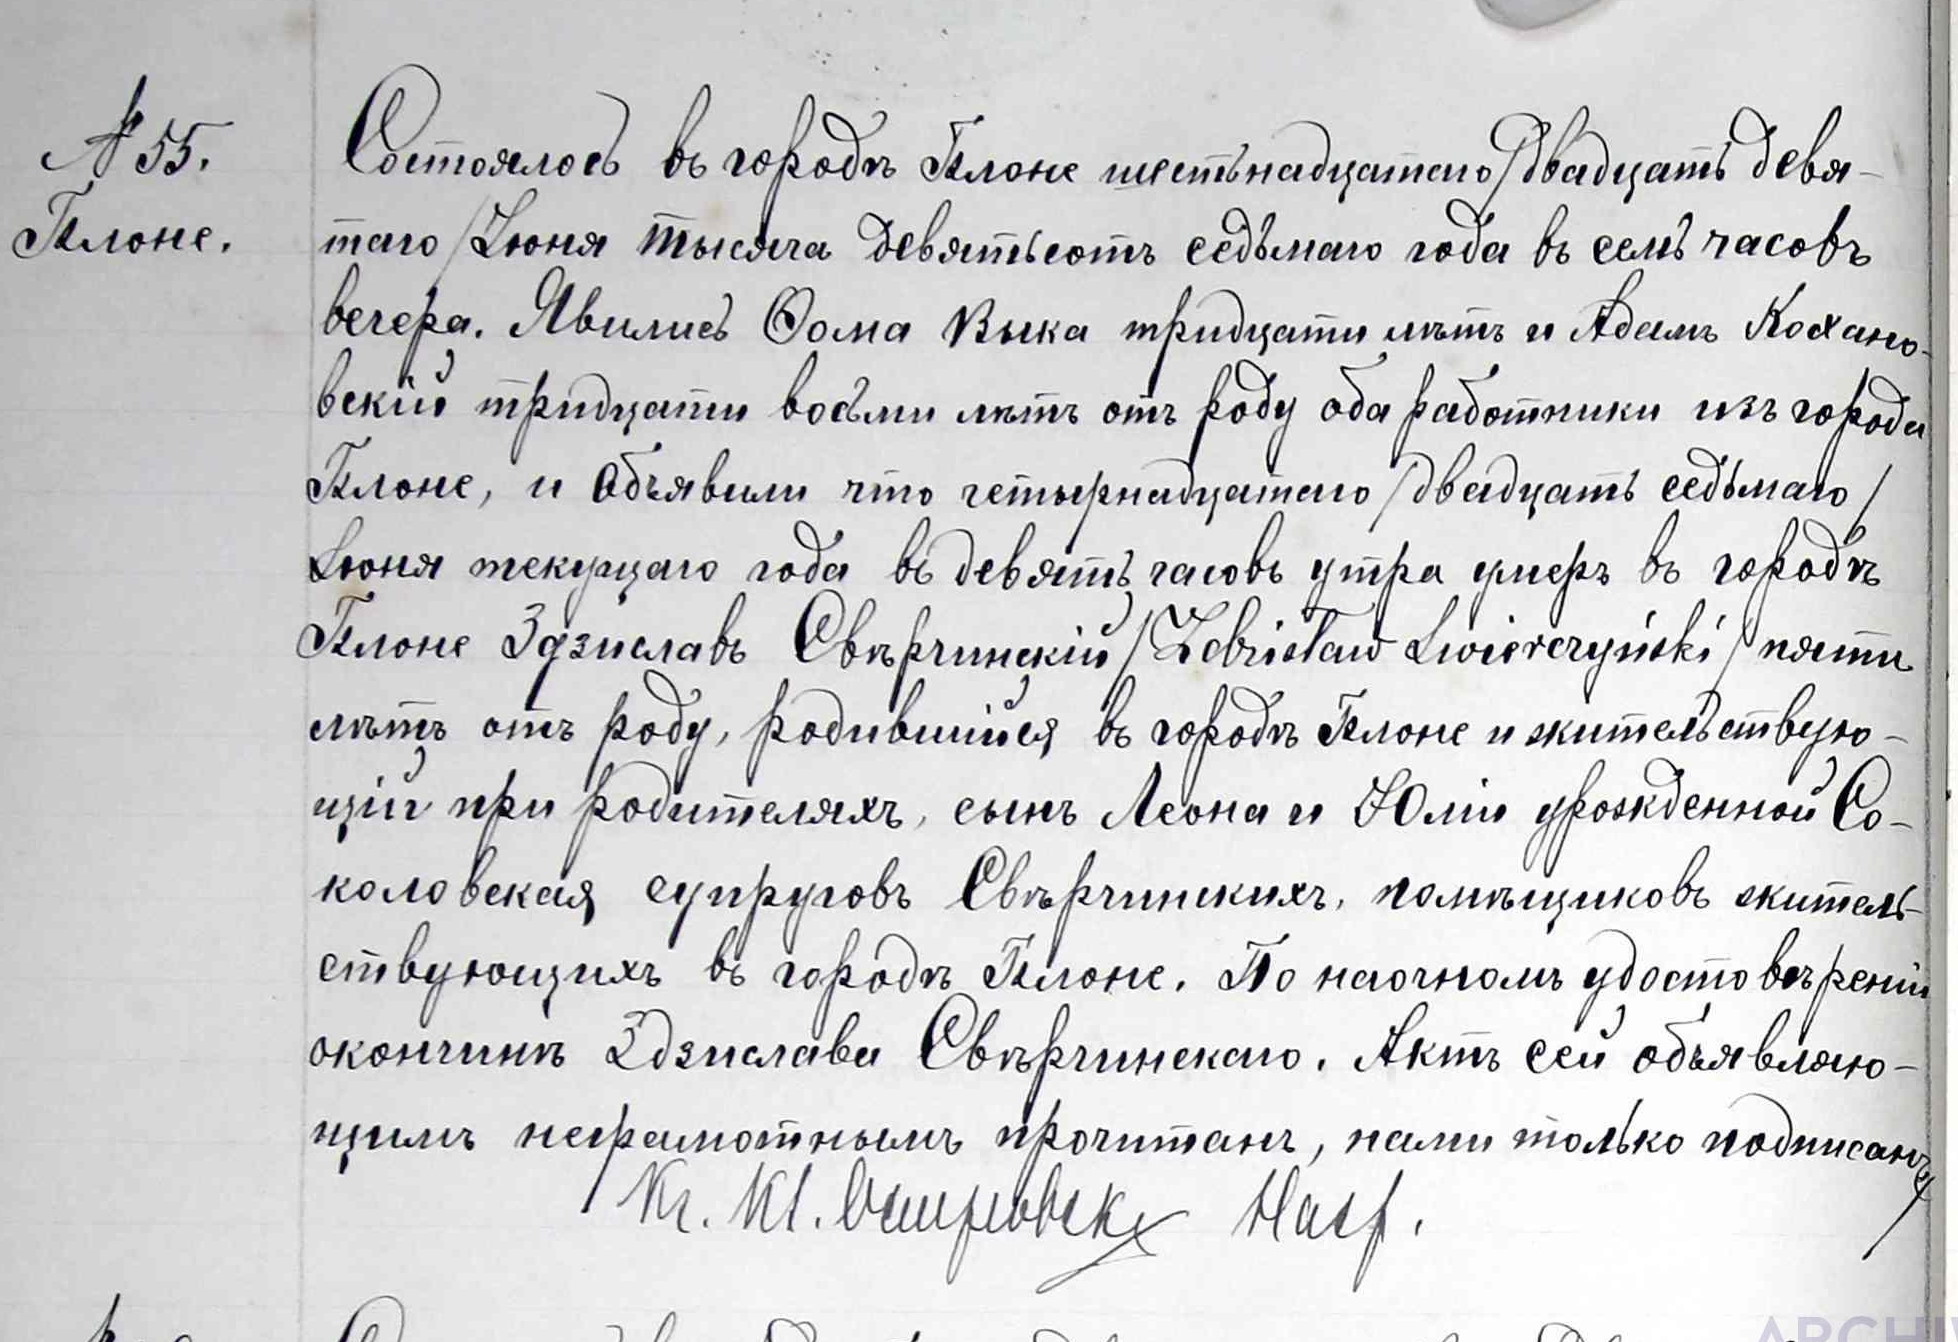 № 55.
Плоне.
Состоялось въ городѣ Плоне шестьнадцатаго /двадцать девя-
таго/ Іюня тысяча девятьсотъ седьмаго года въ семь часовъ
вечера. Явились Ѳома Выка тридцати лѣтъ и Адамъ Кохано-
вскій тридцати восьми лѣтъ отъ роду оба работники изъ города
Плоне, и объявили что четырнадцатаго /двадцать седьмаго/
Іюня текущаго года въ девять часовъ утра умеръ въ городѣ
Плоне Здзиславъ Свѣрчинскій /Zdzisław Swierczyński/ пяти
лѣтъ отъ роду, родившійся въ городѣ Плоне и жительствую-
щій при родителяхъ, сынъ Леона и Юліи урожденной Со-
коловская супруговъ Свѣрчинскихъ, помѣщиковъ житель-
ствующихъ въ городѣ Плоне. По наочномъ удостовѣреніи
окончинѣ Здзислава Свѣрчинскаго. Актъ сей объявляю-
щимъ неграмотнымъ прочитанъ, нами только подписанъ